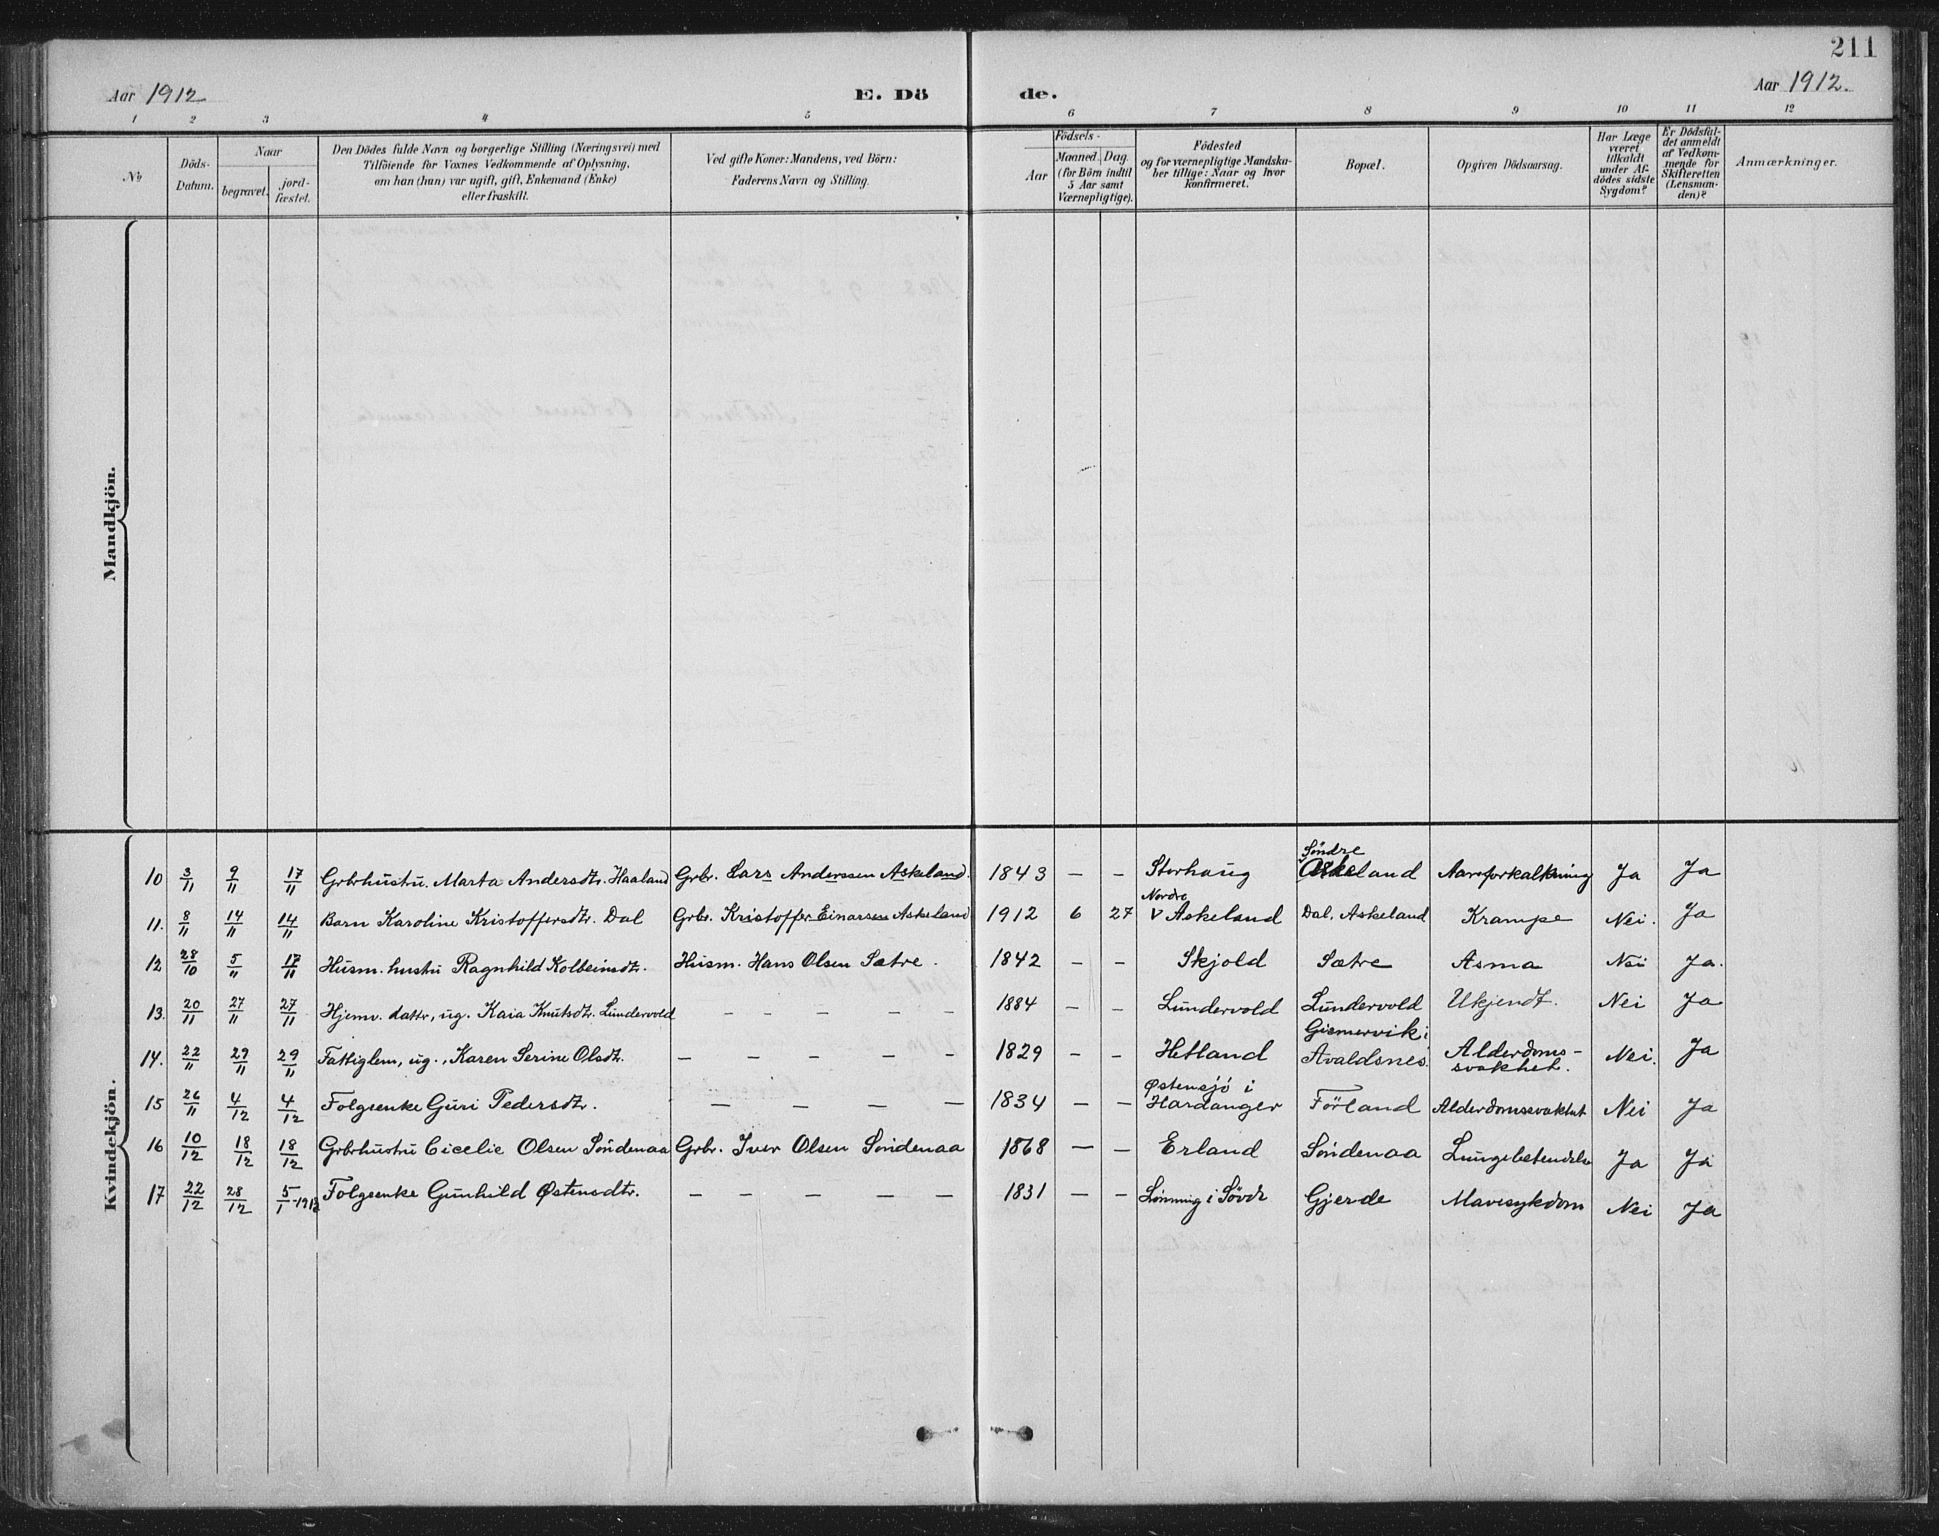 211
Aar 1912
E. Dö
de.
Aar 1912.
1 2 3 4 5 6 7 8 9 10 11 12
No
Döds-Datum.
Naar
begravet.
jord-fæstet.
Den Dödes fulde Navn og borgerlige Stilling (Næringsvei) med
Tilföiende for Voxnes Vedkommende af Oplysning,
om han (hun) var ugift, gift, Enkemand (Enke)
eller fraskilt.
Ved gifte Koner: Mandens, ved Börn:
Faderens Navn og Stilling.
Födsels-
Aar
Maaned. Dag.
(for Börn indtil
5 Aar samt
Værnepligtige).
Födested
og for værnepligtige Mandska-
ber tillige: Naar og hvor
konfirmeret.
Bopæl.
Opgiven Dödsaarsag.
Har Læge
været
tilkaldt
under Af-
dödes sidste
Sygdom?
Er Dödsfal-
det anmeldt
af Vedkom-
mende for
Skifteretten
(Lensman-
den)?
Anmærkninger.
Mandkjön.
Kvindekjön.
10 3/11 9/11 17/11 Grbrhustru. Marta Andersdtr. Haaland Grbr. Lars Anderssen Askeland. 1843 — — Storhaug Søndre Askeland Aareforkalkning Ja Ja
11. 8/11 14/11 14/11 Barn Karoline Kristoffersdtr. Dal Grbr. Kristoffer Einarsen Askeland 1912 6 27 Nordre v Askeland Dal, Askeland Krampe Nei. Ja
12 28/10 5/11 17/11 Husm. hustru Ragnhild Kolbeinsdtr. Husm. Hans Olsen Sætre. 1842 — — Skjold Sætre Asma Nei Ja.
13. 20/11 27/11 27/11 Hjemv. dattr, ug. Kaia Knutsdtr. Lundervold — — — — — 1884 — — Lundervold Lundervold Ukjendt. Nei Ja
14. 22/11 29/11 29/11 Fattiglem, ug., Karen Serine Olsdtr. — — — — — 1829 — — Hetland Gismervik i Avaldsnes Alderdoms-svakhet. Nei. Ja
15 26/11 4/12 4/12 Folgeenke Guri Pedersdtr. — — — — 1834 — — Østensjö i Hardanger Förland Alderdomssvakhet Nei Ja
16 10/12 18/12 18/12 Grbrhustru Cicelie Olsen Söndenaa Grbr. Iver Olsen Söndenaa 1868 — — Erland Söndenaa Lungebetendelse Ja Ja
17 22/12 28/12 5/1-1913 Folgeenke Gunhild Østensdtr. — — — — — 1831 — — Lönning i Sövde Gjerde Mavesykdom Nei Ja